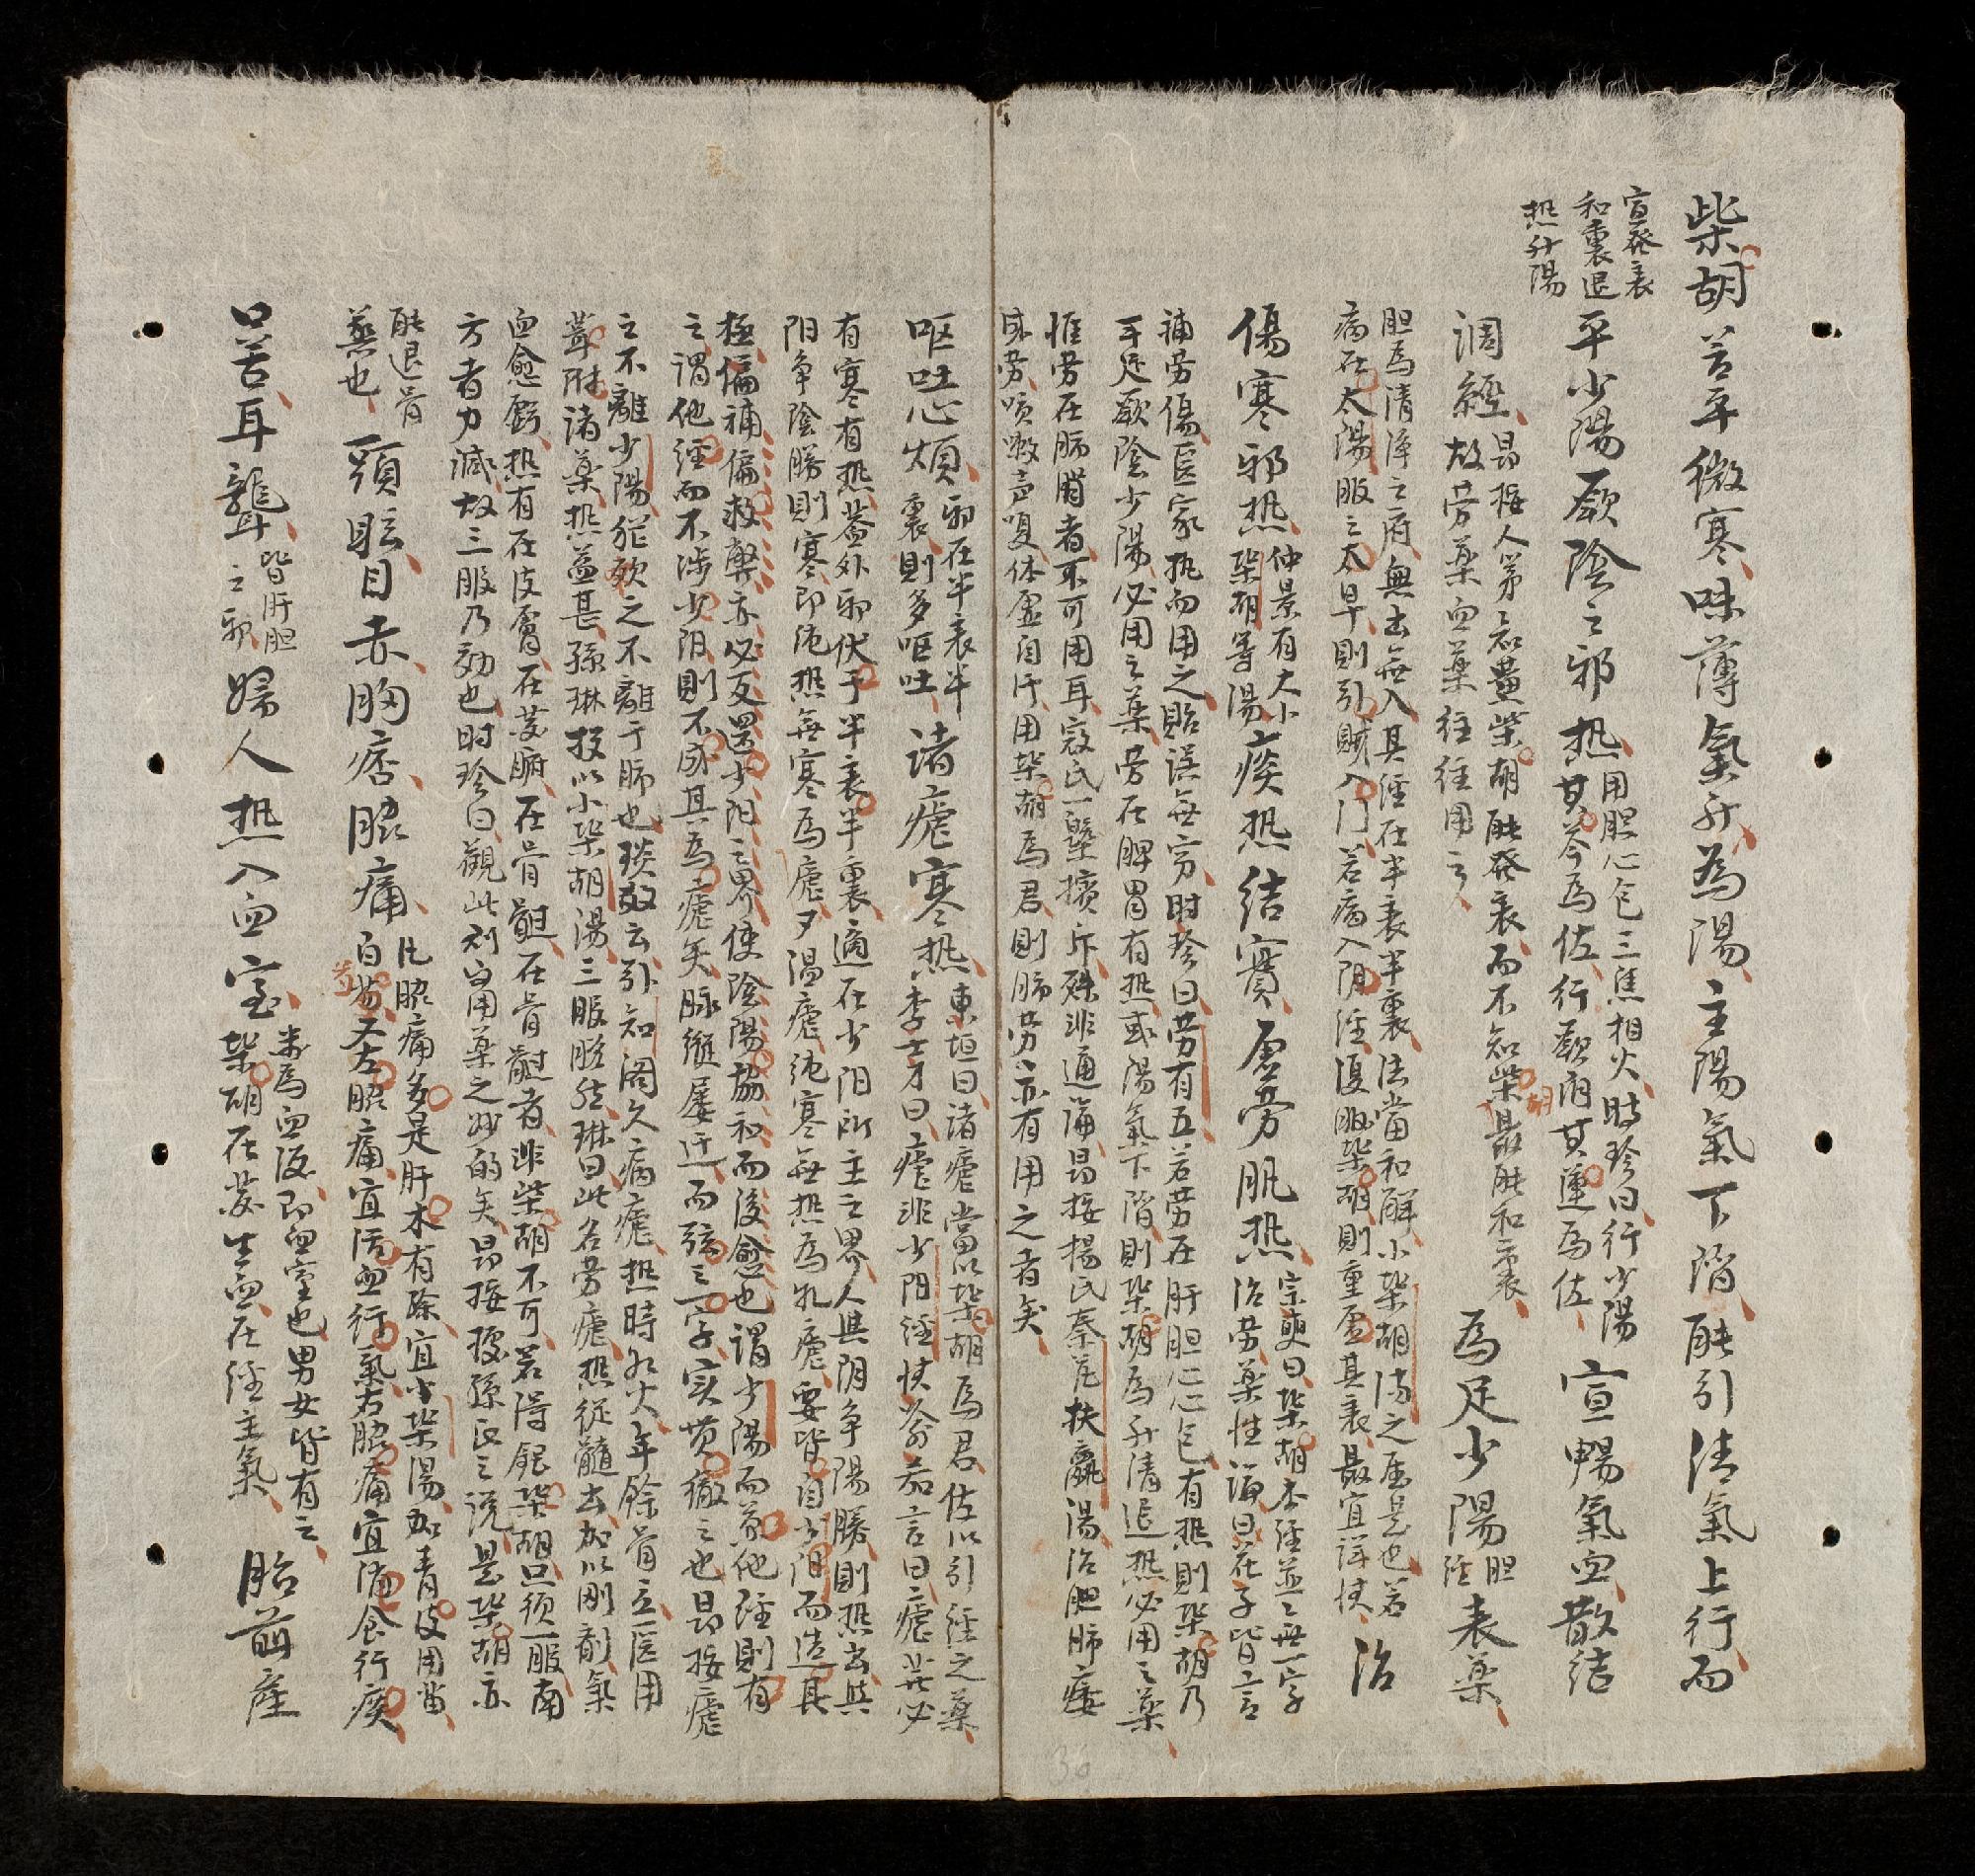 柴胡苦平微寒味薄氣升為陽主陽氣下陷能引清氣上行而
宣發表
和裏退
热升陽
平少陽厥陰之邪热
用胆心包三焦相火時珍曰行少陽
其芩為佐行厥阴其連為佐
宣暢氣血散結
調經
昂按人第知黃柴胡能發表而不知柴胡最能和裏
故劳藥血藥往往用之
為足少陽
胆
经
表藥
胆為清淨之府無出無入其经在半表半裏法當和解小柴胡湯之屬是也若
病在太陽服之太早則引賊入门若病入阴经復服柴胡則重虛其表最宜詳慎
治
傷寒邪热
仲景有大小
柴胡等湯
痰热結實虛劳肌热
宗奭曰柴胡本经並無一字
治劳藥性論日華子皆言
補劳傷医家执而用之貽誤無穷时珍曰劳有五若劳在肝胆心心包有热則柴胡乃
手足厥陰少陽必用之藥劳在脾胃有热或陽氣下陷則柴胡為升清退热必用之藥
惟劳在肺腎者不可用耳寇氏一槩擯斥殊非通論昂按楊氏秦艽扶羸湯治胆肺痿
成劳咳嗽声嗄体虛自汗用柴胡為君則肺劳亦有用之者矣
呕吐心煩
邪在半表半
裏則多呕吐
诸瘧寒热
東垣曰诸瘧當以柴胡為君佐以引经之藥
李士才曰瘧非少阳经慎翁茄言曰瘧発必
有寒有热葢外邪伏于半表半裏適在少阳所主之界人與阴争陽勝則热出與
阳争陰勝則寒即纯热無寒為瘅瘧温瘧纯寒無热為牝瘧要皆自少阳而造其
极偏補偏救弊亦必返還少阳之界使陰陽協和而後愈也謂少陽而兼他经則有
之謂他经而不涉少阳則不成其為瘧矣脉縱屡迁而弦之一字实贯徹之也昂按瘧
之不離少陽犹欬之不離于肺也琰琰云引知閣久病瘧热時如火年餘骨立医用
茸附诸藥热益甚孫琳投以小柴胡湯三服脱然琳曰此名劳瘧热從髓出加以刚剤氣
血愈虧热有在皮膚在臟腑在骨髓在骨髓者非柴胡不可若得銀柴胡只须一服南
方者力減故三服乃効也时珍曰觀此则用藥之妙的矣昂按據孫氏之说是柴胡亦
能退骨
蒸也
頭眩目赤胸痞脇痛
凡脇痛多是肝木有餘宜小柴湯加青皮用当
白芍又左脇痛宜活血行氣右脇痛宜消食行痰
芍
口苦耳聾
皆肝胆
之邪
婦人热入血室
冲為血海即血室也男女皆有之
柴胡在臟主血在经主氣
胎前産